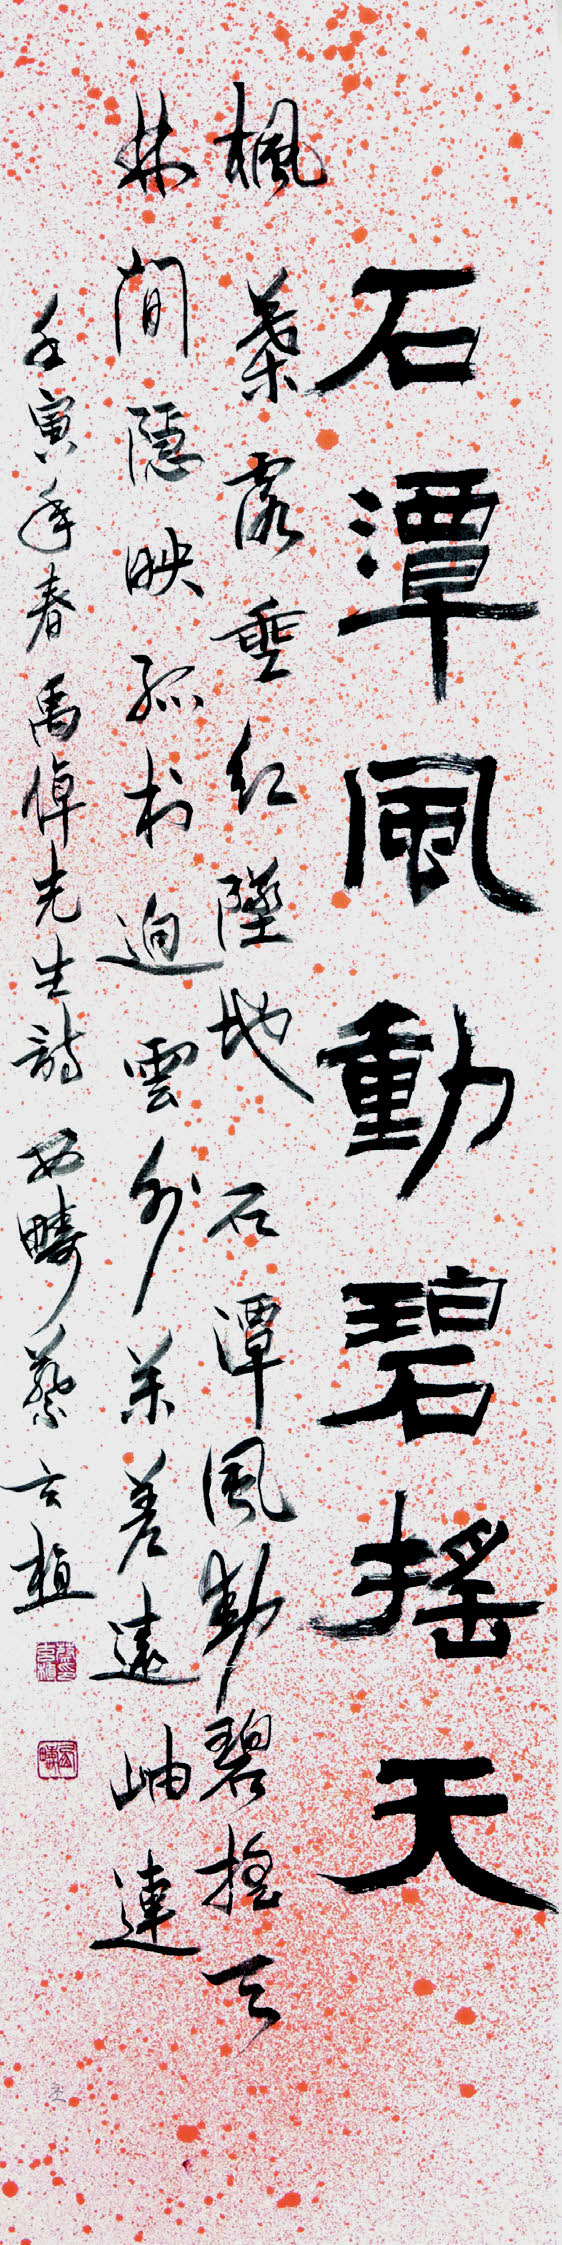 石潭風動碧搖天
楓葉露垂紅墜地 石潭風動碧搖天
林間隱映孤村迥 雲外参差遠岫連
壬寅年春 禹倬先生詩 西疇 蔡玄植